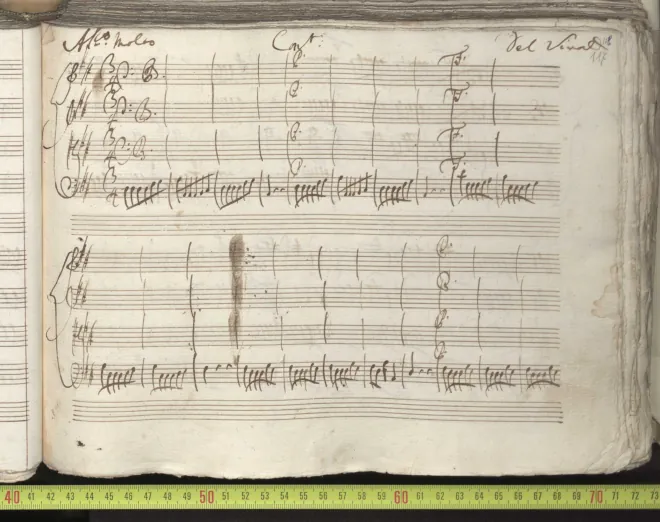 All.º Molto Con.to Del Vivaldi
117
40 41 42 43 44 45 46 47 48 49 50 51 52 53 54 55 56 57 58 59 60 61 62 63 64 65 66 67 68 69 70 71 72 73